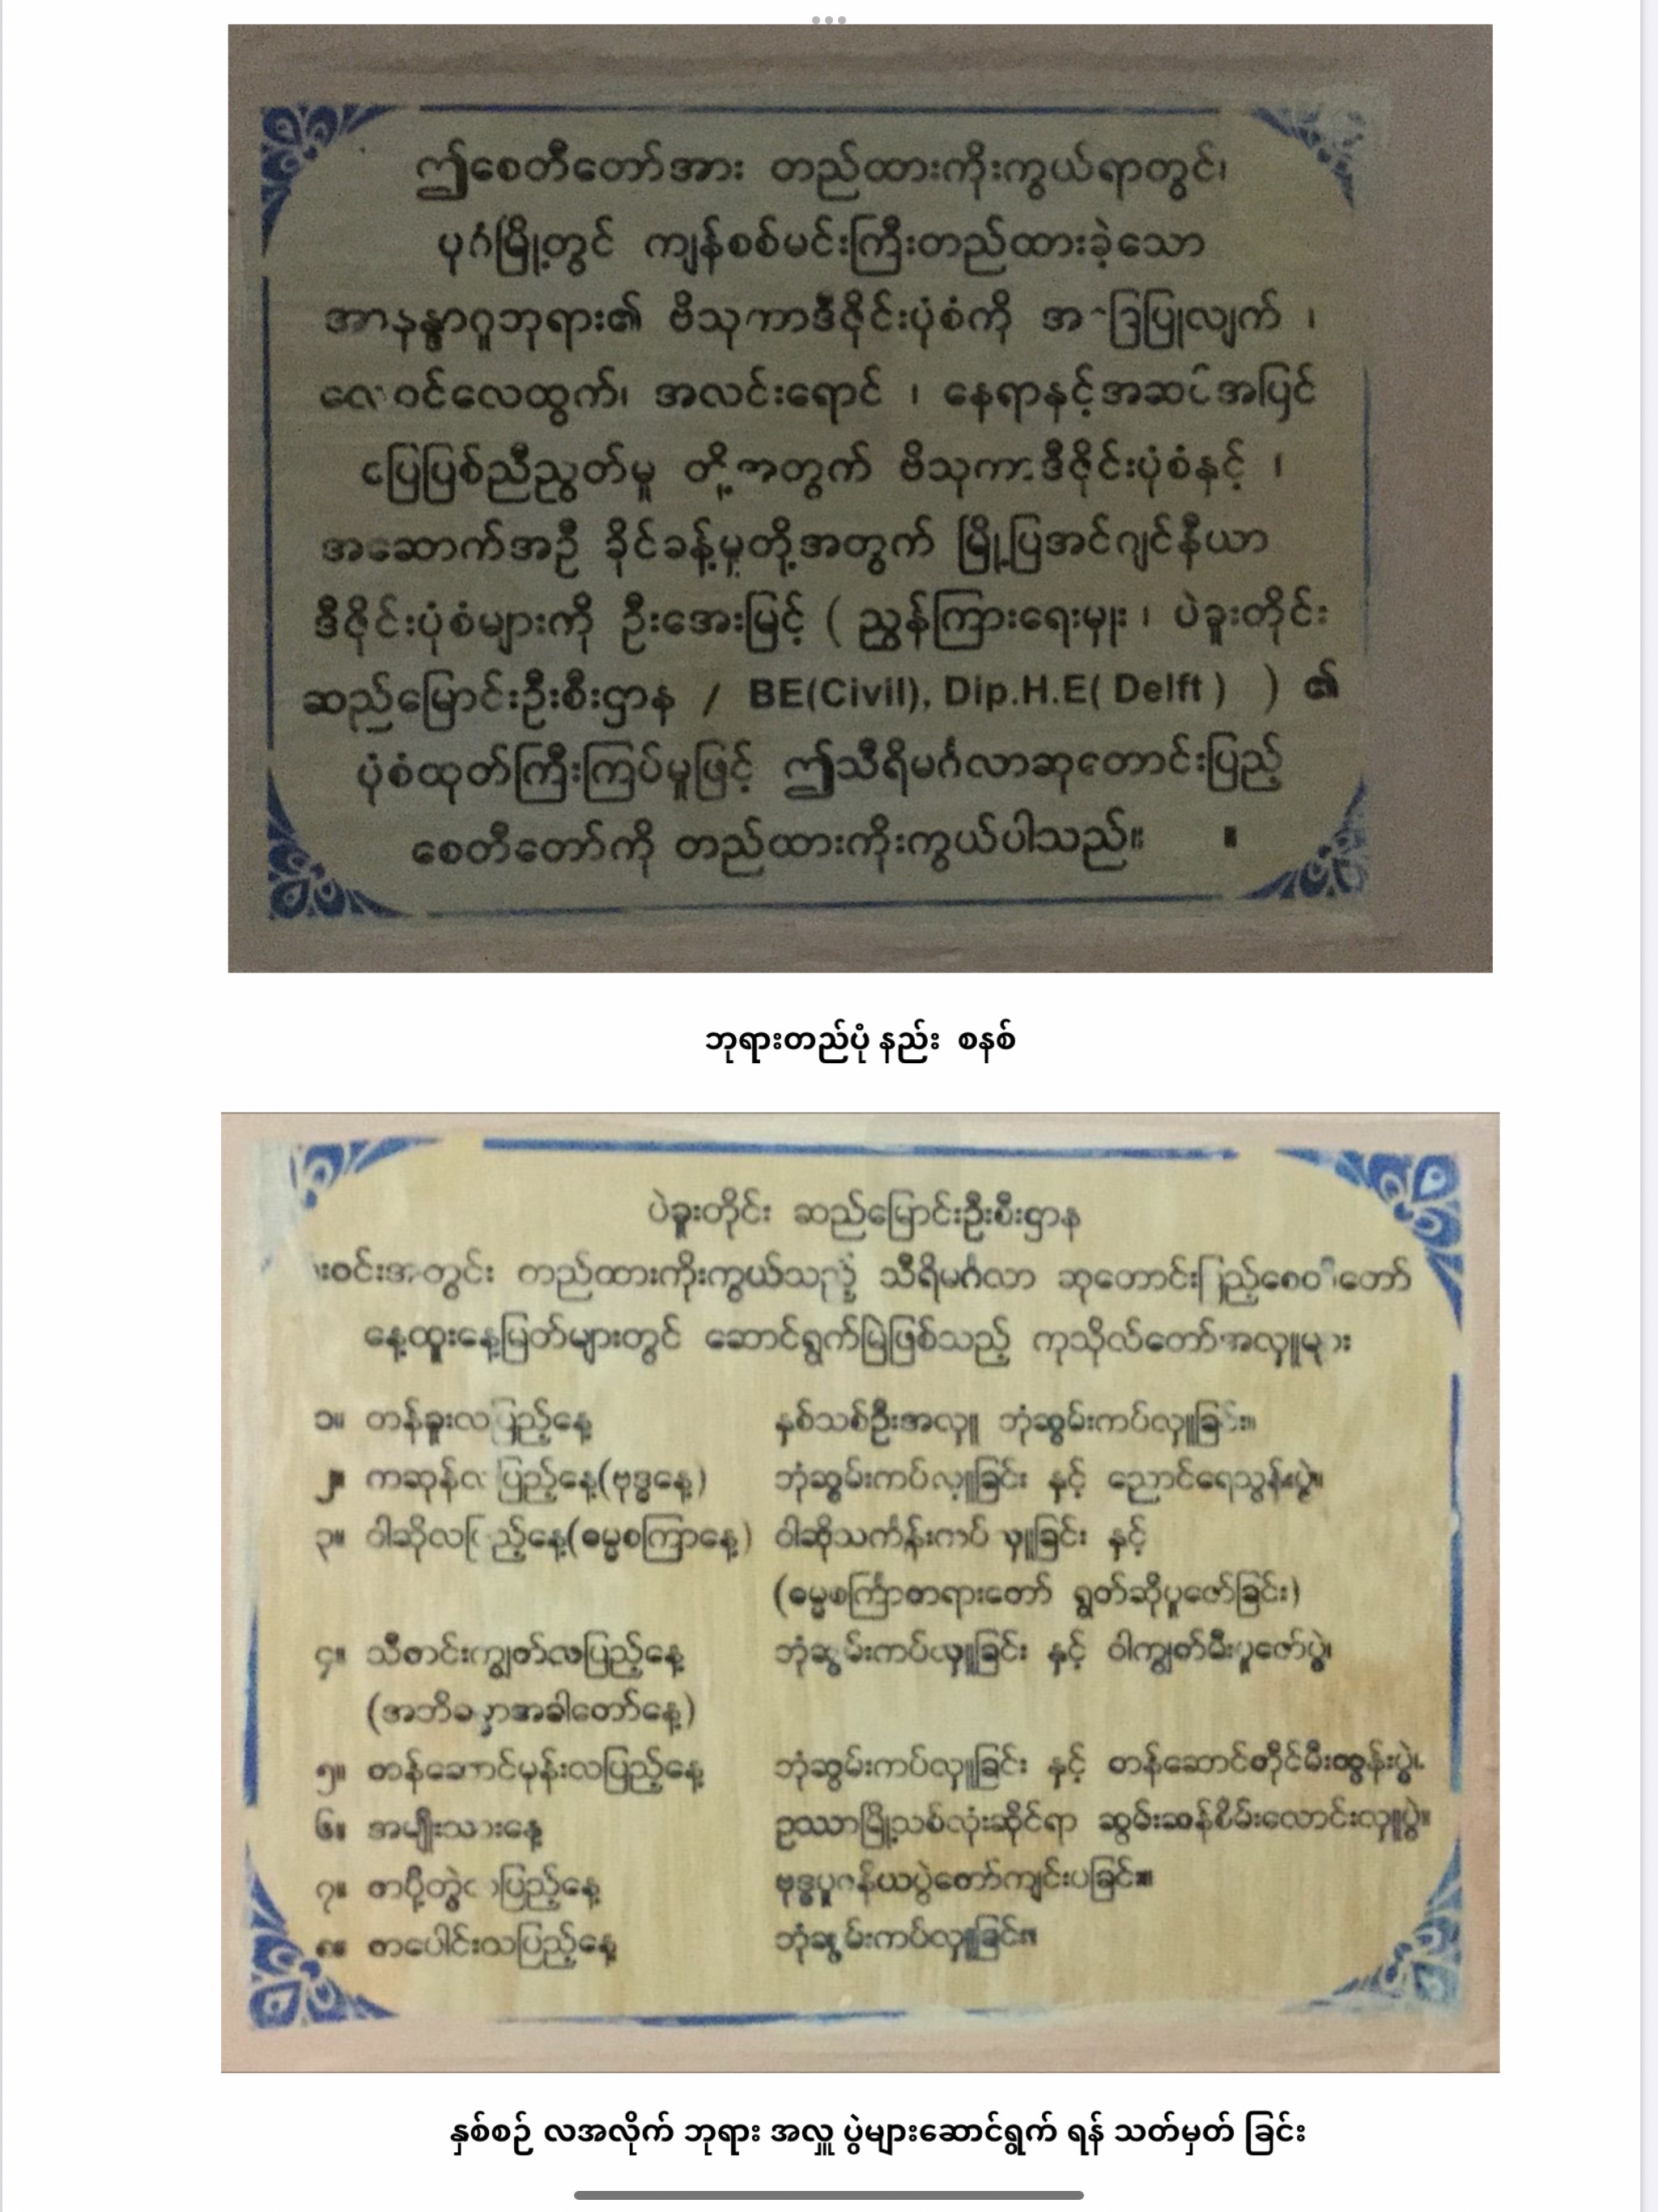 ဤစေတီတော်အား တည်ထားကိုးကွယ်ရာတွင်၊
ပုဂံမြို့တွင် ကျန်စစ်မင်းကြီးတည်ထားခဲ့သော
အာနန္ဒာဂူဘုရား၏ ဗိသုကာဒီဇိုင်းပုံစံကို
လေဝင်လေထွက်၊ အလင်းရောင် ၊ နေရာနှင့်အဆင်အပြင်
ပြေပြစ်ညီညွတ်မှု တို့အတွက် ဗိသုကာဒီဇိုင်းပုံစံနှင့် ၊
အဆောက်အဦ ခိုင်ခန့်မှုတို့အတွက် မြို့ပြအင်ဂျင်နီယာ
ဒီဇိုင်းပုံစံများကို ဦးအေးမြင့် ( ညွှန်ကြားရေးမှုး ၊ ပဲခူးတိုင်း
ဆည်မြောင်းဦးစီးဌာန / BE(Civil), Dip.H.E( Delft ) ) ၏
ပုံစံထုတ်ကြီးကြပ်မှုဖြင့် ဤသီရိမင်္ဂလာဆုတောင်းပြည့်
စေတီတော်ကို တည်ထားကိုးကွယ်ပါသည်။ ။
ဘုရားတည်ပုံ နည်း စနစ်
ပဲခူးတိုင်း ဆည်မြောင်းဦးစီးဌာန
တည်ထားကိုးကွယ်သည့် သီရိမင်္ဂလာ ဆုတောင်းပြည့်စေတီတော်
နေ့ထူးနေ့မြတ်များတွင် ဆောင်ရွက်မြဲဖြစ်သည့် ကုသိုလ်တော်အလှူများ
၁။ တန်ခူးလပြည့်နေ့ နှစ်သစ်ဦးအလှူ ဘုံဆွမ်းကပ်လှူခြင်း။
၂။ ကဆုန်လပြည့်နေ့(ဗုဒ္ဓနေ့) ဘုံဆွမ်းကပ်လှူခြင်း နှင့် ညောင်ရေသွန်းပွဲ။
၃။ ဝါဆိုလပြည့်နေ့(ဓမ္မစကြာနေ့) ဝါဆိုသင်္ကန်းကပ်လှူခြင်း နှင့်
(ဓမ္မစင်္ကြာတရားတော် ရွတ်ဆိုပူဇော်ခြင်း)
၄။ သီတင်းကျွတ်လပြည့်နေ့ ဘုံဆွမ်းကပ်လှူခြင်း နှင့် ဝါကျွတ်မီးပူဇော်ပွဲ၊
(အဘိဓမ္မာအခါတော်နေ့)
၅။ တန်ဆောင်မုန်းလပြည့်နေ့ ဘုံဆွမ်းကပ်လှူခြင်း နှင့် တန်ဆောင်တိုင်မီးထွန်းပွဲ၊
၆။ အမျိုးသားနေ့ ဥဿာမြို့သစ်လုံးဆိုင်ရာ ဆွမ်းဆန်စိမ်းလောင်းလှူပွဲ။
၇။ တပို့တွဲလပြည့်နေ့ ဗုဒ္ဓပူဇနိယပွဲတော်ကျင်းပခြင်း။
၈။ တပေါင်းလပြည့်နေ့ ဘုံဆွမ်းကပ်လှူခြင်း။
နှစ်စဉ် လအလိုက် ဘုရား အလှူ ပွဲများဆောင်ရွက် ရန် သတ်မှတ် ခြင်း